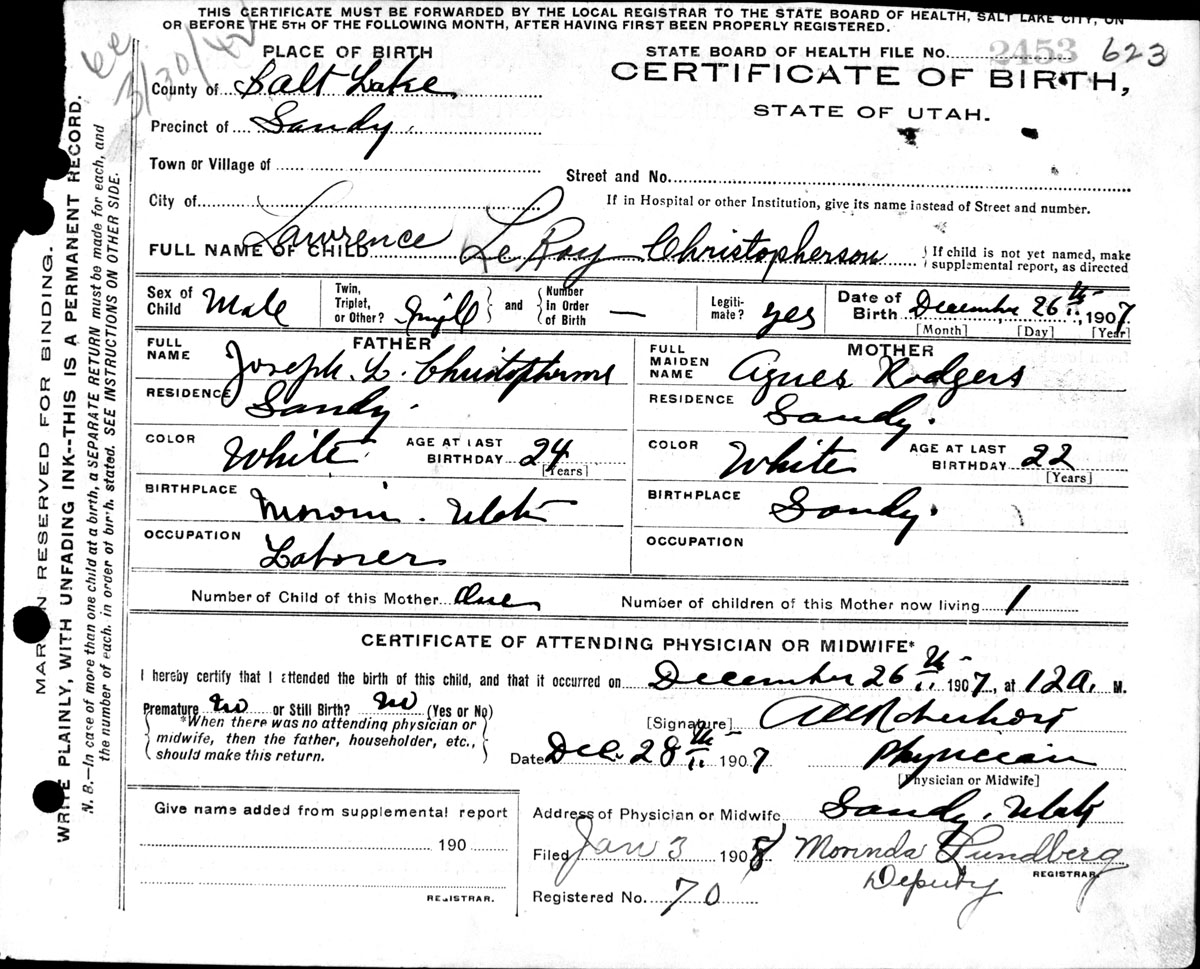 THIS CERTIFICATE MUST BE FORWARDED BY THE LOCAL REGISTRAR TO THE STATE BOARD OF HEALTH, SALT LAKE CITY, ON
OR BEFORE THE 5TH OF THE FOLLOWING MONTH, AFTER HAVING FIRST BEEN PROPERLY REGISTERED.
3/30/42
PLACE OF BIRTH
STATE BOARD OF HEALTH FILE NO. 2453 623
County of Salt Lake
CERTIFICATE OF BIRTH,
Precinct of Sandy.
STATE OF UTAH.
Town or Village of
Street and No.
City of
If in Hospital or other Institution, give its name instead of Street and number.
FULL NAME OF CHILD Lawrence LeRoy Christopherson
If child is not yet named, make
supplemental report, as directed
Sex of Child Male
Twin, Triplet, or Other? and Number in Order of Birth —
Legitimate? yes
Date of Birth December 26th 1907
[Month] [Day] [Year]
FATHER
FULL NAME Joseph. L. Christopherson
RESIDENCE Sandy.
COLOR White
AGE AT LAST BIRTHDAY 24 [Years]
BIRTHPLACE Moroni. Utah
OCCUPATION Laborer
MOTHER
FULL MAIDEN NAME Agnes Rodgers
RESIDENCE Sandy.
COLOR White
AGE AT LAST BIRTHDAY 22 [Years]
BIRTHPLACE Sandy.
OCCUPATION
Number of Child of this Mother One
Number of children of this Mother now living 1
CERTIFICATE OF ATTENDING PHYSICIAN OR MIDWIFE*
I hereby certify that I attended the birth of this child, and that it occurred on December 26th 1907, at 12 a. M.
Premature No or Still Birth? No (Yes or No)
*When there was no attending physician or
midwife, then the father, householder, etc.,
should make this return.
[Signature]
Date Dec. 28th 1907
Physician
[Physician or Midwife]
Give name added from supplemental report
190
REGISTRAR.
Address of Physician or Midwife Sandy. Utah
Filed Jan 3 1908 Morinda Lundberg
Deputy REGISTRAR
Registered No. 70
MARGIN RESERVED FOR BINDING.
WRITE PLAINLY, WITH UNFADING INK--THIS IS A PERMANENT RECORD.
N. B.—In case of more than one child at a birth, a SEPARATE RETURN must be made for each, and
the number of each, in order of birth, stated. SEE INSTRUCTIONS ON OTHER SIDE.